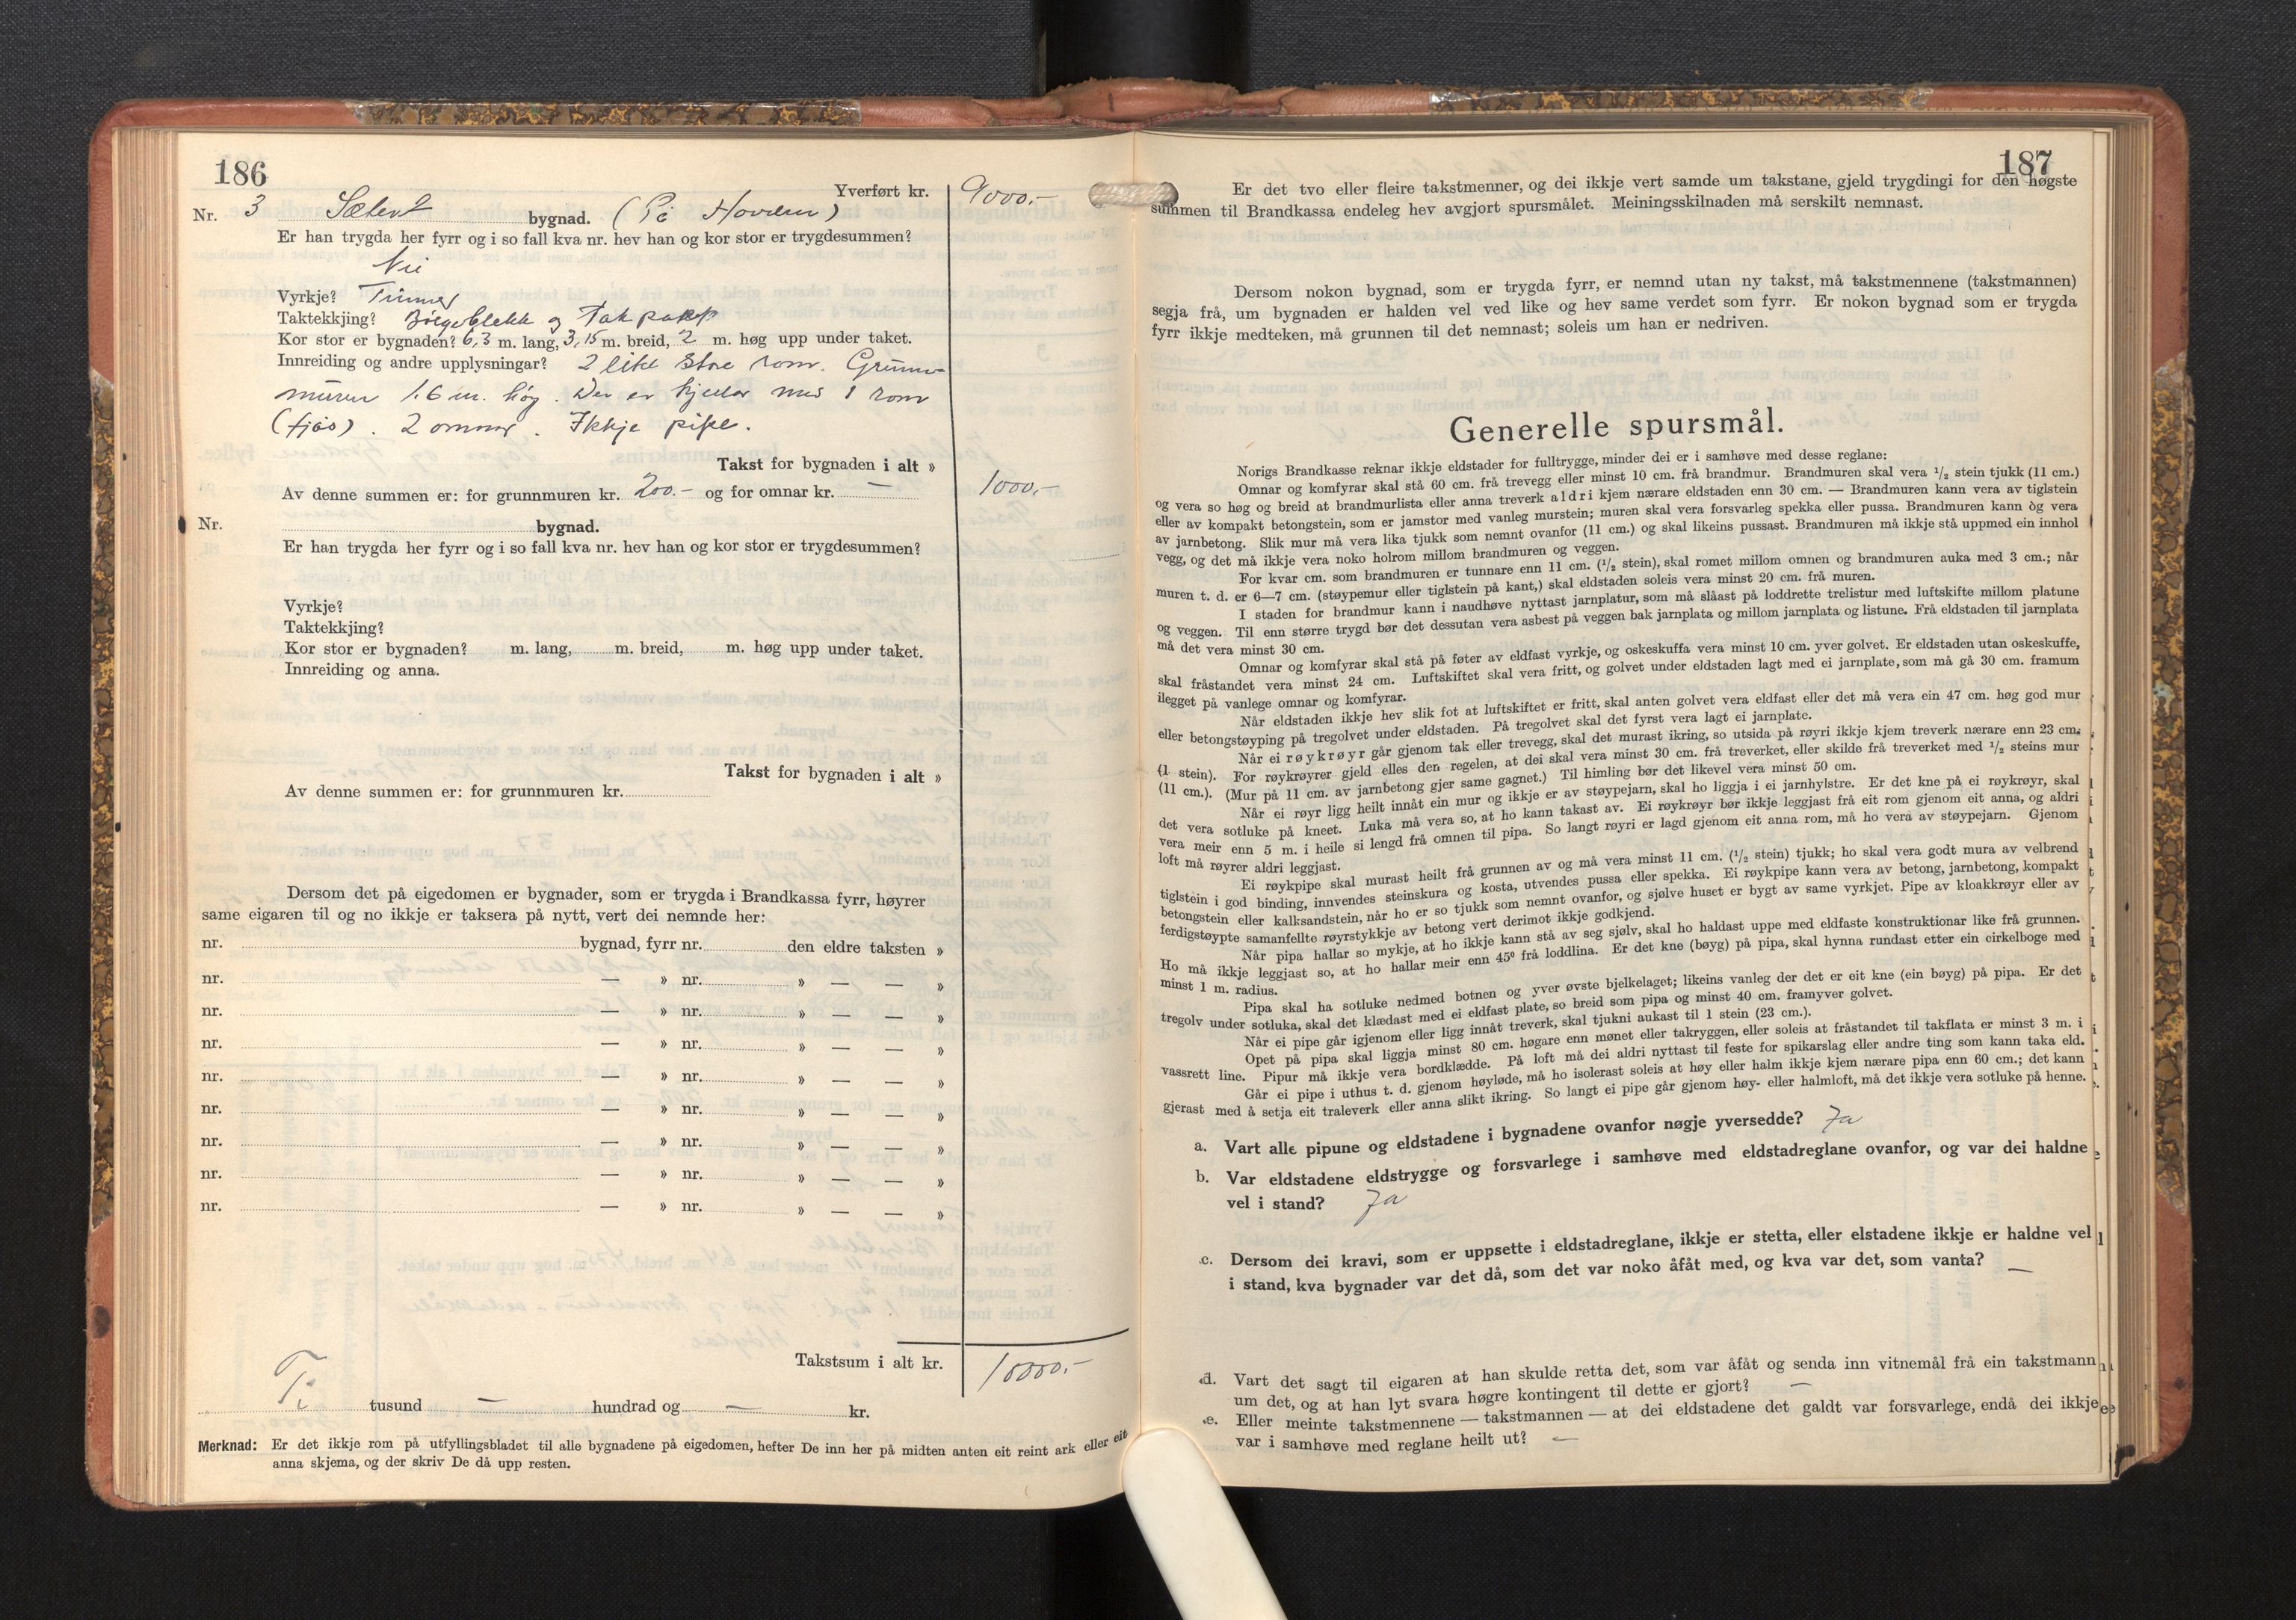 186
Yverført kr. 9000,-
Nr. 3 bygnad. (På Hovden)
Er han trygda her fyrr og i so fall kva nr. hev han og kor stor er trygdesummen?
Nei
Vyrkje? Timmer
Taktekkjing? Bølgeblekk og Takpapp
Kor stor er bygnaden? 6,3 m. lang, 3,15 m. breid, 2 m. høg upp under taket.
Innreiding og andre upplysningar? 2 like store rom. Grunn-
muren 1.6 m. høg. Der er kjellar med 1 rom
(fjøs). 2 omnar. Ikkje pipe.
Takst for bygnaden i alt » 1000,-
Av denne summen er: for grunnmuren kr. 200.- og for omnar kr. —
Nr. bygnad.
Er han trygda her fyrr og i so fall kva nr. hev han og kor stor er trygdesummen?
Vyrkje?
Taktekkjing?
Kor stor er bygnaden? m. lang, m. breid, m. høg upp under taket.
Innreiding og anna.
Takst for bygnaden i alt »
Av denne summen er: for grunnmuren kr.
Dersom det på eigedomen er bygnader, som er trygda i Brandkassa fyrr, høyrer
same eigaren til og no ikkje er taksera på nytt, vert dei nemnde her:
nr. bygnad, fyrr nr. den eldre taksten »
nr. — » nr. » — — »
nr. — » nr. » — — »
nr. — » nr. » — — »
nr. — » nr. » — — »
nr. — » nr. » — — »
nr. — » nr. » — — »
nr. — » nr. » — — »
nr. — » nr. » — — »
Takstsum i alt kr. 10000,-
Ti tusund — hundrad og — kr.
Merknad: Er det ikkje rom på utfyllingsbladet til alle bygnadene på eigedomen, hefter De inn her på midten anten eit reint ark eller eit
anna skjema, og der skriv De då upp resten.
187
Er det tvo eller fleire takstmenner, og dei ikkje vert samde um takstane, gjeld trygdingi for den høgste
summen til Brandkassa endeleg hev avgjort spursmålet. Meiningsskilnaden må serskilt nemnast.
Dersom nokon bygnad, som er trygda fyrr, er nemnd utan ny takst, må takstmennene (takstmannen)
segja frå, um bygnaden er halden vel ved like og hev same verdet som fyrr. Er nokon bygnad som er trygda
fyrr ikkje medteken, må grunnen til det nemnast; soleis um han er nedriven.
Generelle spursmål.
Norigs Brandkasse reknar ikkje eldstader for fulltrygge, minder dei er i samhøve med desse reglane:
Omnar og komfyrar skal stå 60 cm. frå trevegg eller minst 10 cm. frå brandmur. Brandmuren skal vera 1/2 stein tjukk (11 cm.)
og vera so høg og breid at brandmurlista eller anna treverk aldri kjem nærare eldstaden enn 30 cm. — Brandmuren kann vera av tiglstein
eller av kompakt betongstein, som er jamstor med vanleg murstein; muren skal vera forsvarleg spekka eller pussa. Brandmuren kann òg vera
av jarnbetong. Slik mur må vera lika tjukk som nemnt ovanfor (11 cm.) og skal likeins pussast. Brandmuren må ikkje stå uppmed ein innhol
vegg, og det må ikkje vera noko holrom millom brandmuren og veggen.
For kvar cm. som brandmuren er tunnare enn 11 cm. (1/2 stein), skal romet millom omnen og brandmuren auka med 3 cm.; når
muren t. d. er 6—7 cm. (støypemur eller tiglstein på kant,) skal eldstaden soleis vera minst 20 cm. frå muren.
I staden for brandmur kann i naudhøve nyttast jarnplatur, som må slåast på loddrette trelistur med luftskifte millom platune
og veggen. Til enn større trygd bør det dessutan vera asbest på veggen bak jarnplata og millom jarnplata og listune. Frå eldstaden til jarnplata
må det vera minst 30 cm.
Omnar og komfyrar skal stå på føter av eldfast vyrkje, og oskeskuffa vera minst 10 cm. yver golvet. Er eldstaden utan oskeskuffe,
skal fråstandet vera minst 24 cm. Luftskiftet skal vera fritt, og golvet under eldstaden lagt med ei jarnplate, som må gå 30 cm. framum
ilegget på vanlege omnar og komfyrar.
Når eldstaden ikkje hev slik fot at luftskiftet er fritt, skal anten golvet vera eldfast eller det må vera ein 47 cm. høg god mur
eller betongstøyping på tregolvet under eldstaden. På tregolvet skal det fyrst vera lagt ei jarnplate.
Når ei røykrøyr går gjenom tak eller trevegg, skal det murast ikring, so utsida på røyri ikkje kjem treverk nærare enn 23 cm.
(1 stein). For røykrøyrer gjeld elles den regelen, at dei skal vera minst 30 cm. frå treverket, eller skilde frå treverket med 1/2 steins mur
(11 cm.). (Mur på 11 cm. av jarnbetong gjer same gagnet.) Til himling bør det likevel vera minst 50 cm.
Når ei røyr ligg heilt innåt ein mur og ikkje er av støypejarn, skal ho liggja i ei jarnhylstre. Er det kne på ei røykrøyr, skal
det vera sotluke på kneet. Luka må vera so, at ho kann takast av. Ei røykrøyr bør ikkje leggjast frå eit rom gjenom eit anna, og aldri
vera meir enn 5 m. i heile si lengd frå omnen til pipa. So langt røyri er lagd gjenom eit anna rom, må ho vera av støypejarn. Gjenom
loft må røyrer aldri leggjast.
Ei røykpipe skal murast heilt frå grunnen av og må vera minst 11 cm. (1/2 stein) tjukk; ho skal vera godt mura av velbrend
tiglstein i god binding, innvendes steinskura og kosta, utvendes pussa eller spekka. Ei røykpipe kann vera av betong, jarnbetong, kompakt
betongstein eller kalksandstein, når ho er so tjukk som nemnt ovanfor, og sjølve huset er bygt av same vyrkjet. Pipe av kloakkrøyr eller av
ferdigstøypte samanfellte røyrstykkje av betong vert derimot ikkje godkjend.
Når pipa hallar so mykje, at ho ikkje kann stå av seg sjølv, skal ho haldast uppe med eldfaste konstruktionar like frå grunnen.
Ho må ikkje leggjast so, at ho hallar meir enn 45° frå loddlina. Er det kne (bøyg) på pipa, skal hynna rundast etter ein cirkelboge med
minst 1 m. radius.
Pipa skal ha sotluke nedmed botnen og yver øvste bjelkelaget; likeins vanleg der det er eit kne (ein bøyg) på pipa. Er det
tregolv under sotluka, skal det klædast med ei eldfast plate, so breid som pipa og minst 40 cm. framyver golvet.
Når ei pipe går igjenom eller ligg innåt treverk, skal tjukni aukast til 1 stein (23 cm.).
Opet på pipa skal liggja minst 80 cm. høgare enn mønet eller takryggen, eller soleis at fråstandet til takflata er minst 3 m. i
vassrett line. Pipur må ikkje vera bordklædde. På loft må dei aldri nyttast til feste for spikarslag eller andre ting som kann taka eld.
Går ei pipe i uthus t. d. gjenom høyløde, må ho isolerast soleis at høy eller halm ikkje kjem nærare pipa enn 60 cm.; det kann
gjerast med å setja eit traleverk eller anna slikt ikring. So langt ei pipe går gjenom høy- eller halmloft, må det ikkje vera sotluke på henne.
a. Vart alle pipune og eldstadene i bygnadene ovanfor nøgje yversedde? Ja
b. Var eldstadene eldstrygge og forsvarlege i samhøve med eldstadreglane ovanfor, og var dei haldne
vel i stand? Ja
c. Dersom dei kravi, som er uppsette i eldstadreglane, ikkje er stetta, eller elstadene ikkje er haldne vel
i stand, kva bygnader var det då, som det var noko åfåt med, og kva var det, som vanta? —
d. Vart det sagt til eigaren at han skulde retta det, som var åfåt og senda inn vitnemål frå ein takstmann
um det, og at han lyt svara høgre kontingent til dette er gjort? —
e. Eller meinte takstmennene — takstmannen — at dei eldstadene det galdt var forsvarlege, endå dei ikkje
var i samhøve med reglane heilt ut? —